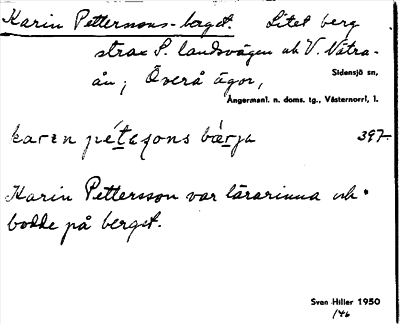 Karin Petterssons-berget. Litet berg
strax S. landsvägen och V. Nätra-
ån; Överå ägor,
Sidensjö sn,
Ångermanl. n. doms. tg., Västernorrl, l.
397.
Karin Pettersson var lärarinna och
bodde på berget.
Sven Hiller 1950
/46